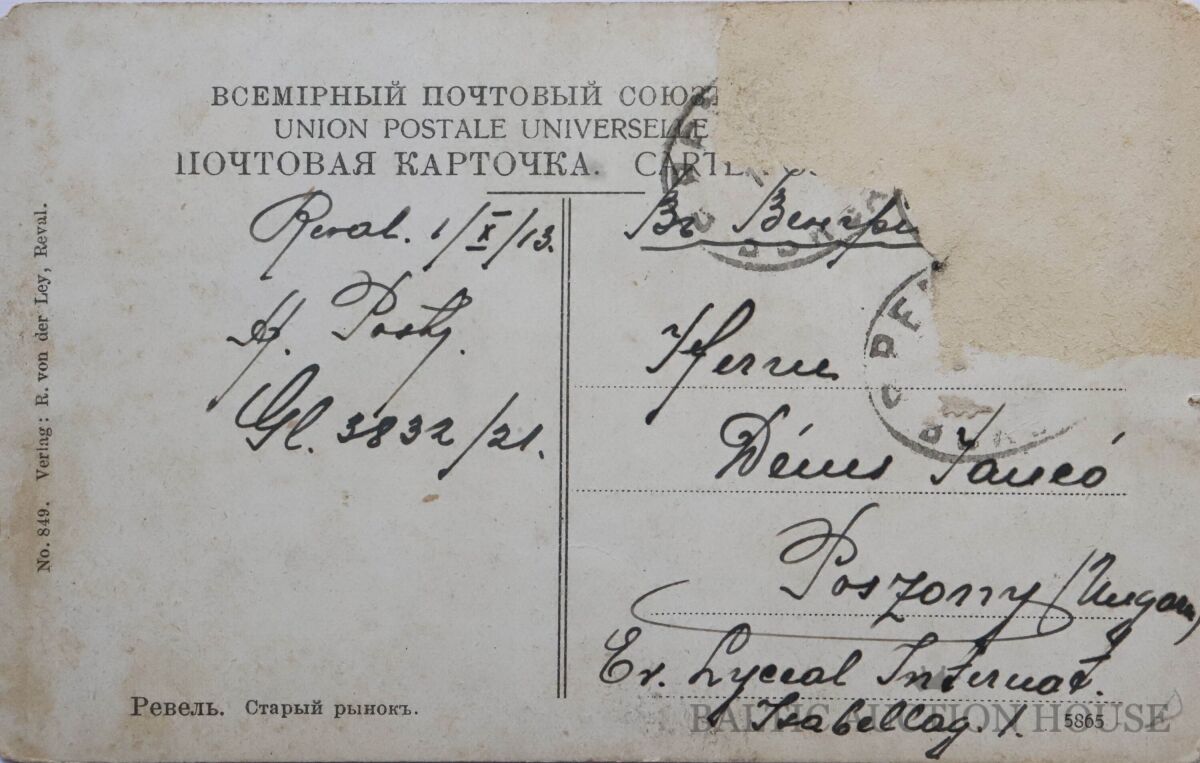 ВСЕМІРНЫЙ ПОЧТОВЫЙ СОЮЗ
UNION POSTALE UNIVERSELLE
ПОЧТОВАЯ КАРТОЧКА. CARTE
Reval. 1/X/13.
Gl. 3832/21.
Въ Венгрі
Herrn
Dénes Jancó
Poszony (Ungarn)
Ev. Lyceal Internat.
Isabellag. 1.
No. 849. Verlag: R. von der Ley, Reval.
Ревель. Старый рынокъ.
5865
BALTIC AUCTION HOUSE